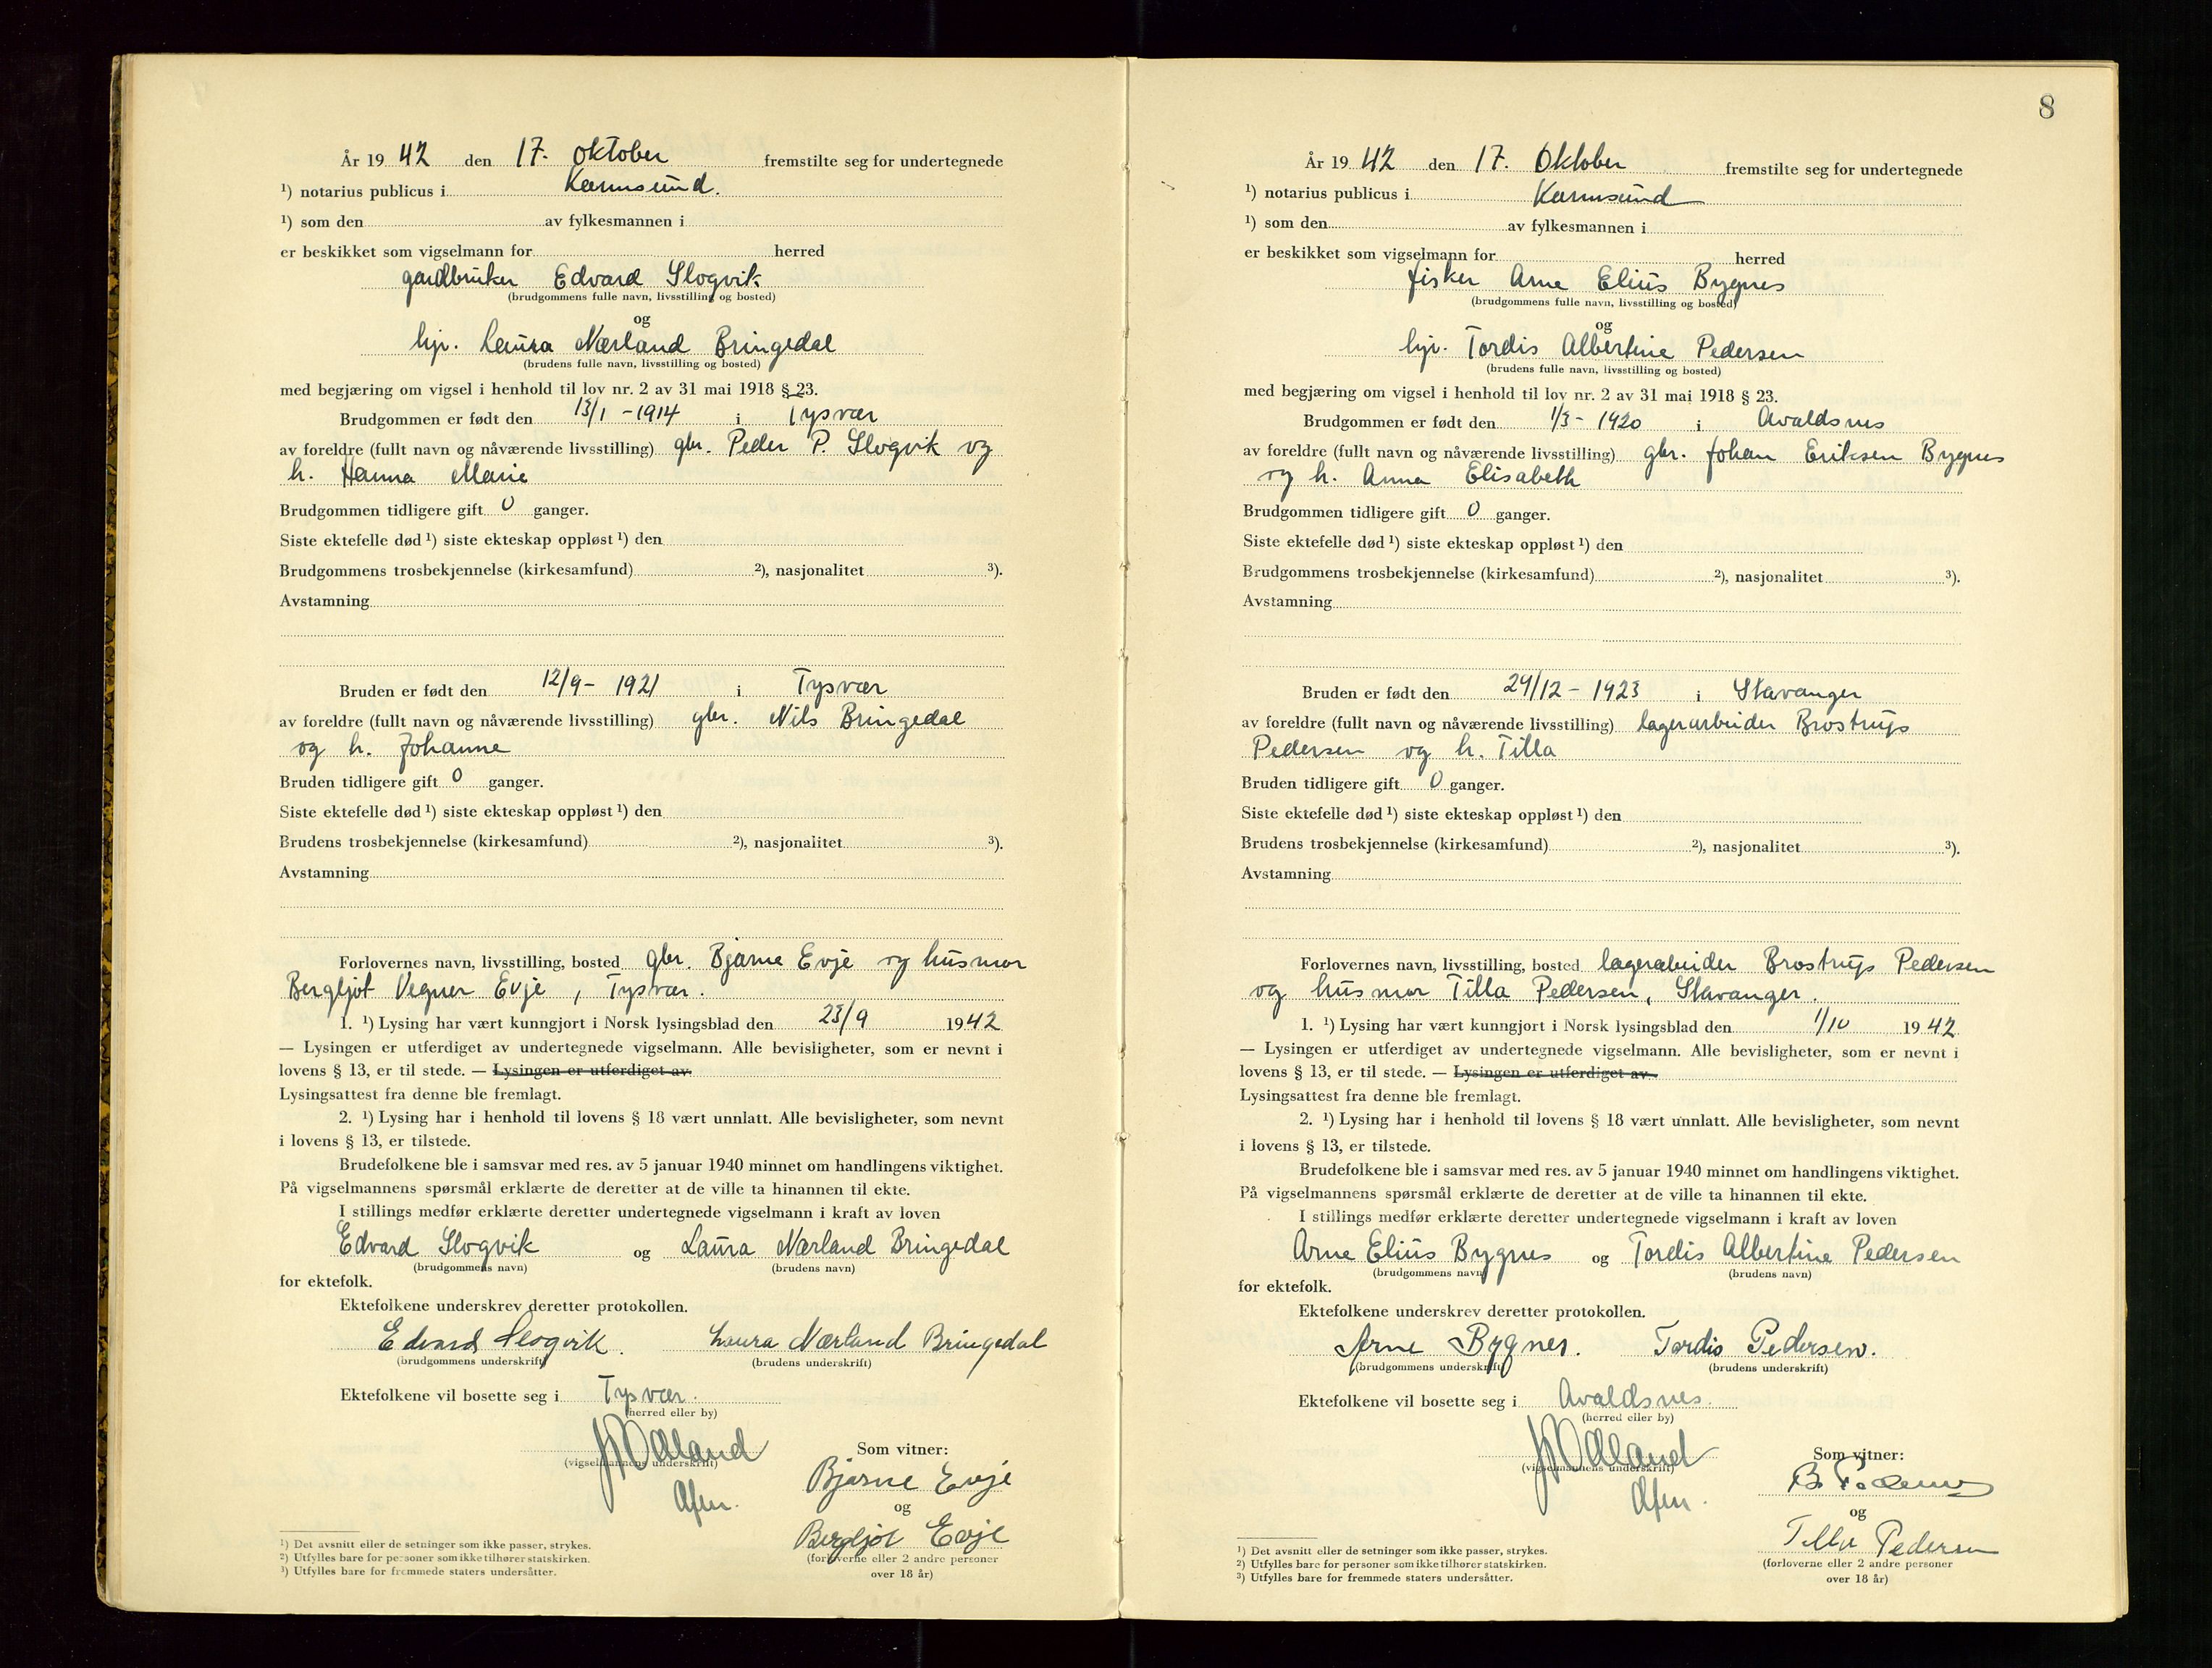 År 19 42 den 17. oktober fremstilte seg for undertegnede
¹) notarius publicus i Karmsund.
¹) som den av fylkesmannen i
er beskikket som vigselmann for herred
gardbruker Edvard Slogvik
(brudgommens fulle navn, livsstilling og bosted)
og
hjv. Laura Nærland Bringedal
(brudens fulle navn, livsstilling og bosted)
med begjæring om vigsel i henhold til lov nr. 2 av 31 mai 1918 § 23.
Brudgommen er født den 13/1 - 1914 i Tysvær
av foreldre (fullt navn og nåværende livsstilling) gbr. Peder P. Slogvik og
h. Hanna Marie
Brudgommen tidligere gift 0 ganger.
Siste ektefelle død ¹) siste ekteskap oppløst ¹) den
Brudgommens trosbekjennelse (kirkesamfund) ²), nasjonalitet ³).
Avstamning
Bruden er født den 12/9 - 1921 i Tysvær
av foreldre (fullt navn og nåværende livsstilling) gbr. Nils Bringedal
og h. Johanne
Bruden tidligere gift 0 ganger.
Siste ektefelle død ¹) siste ekteskap oppløst ¹) den
Brudens trosbekjennelse (kirkesamfund) ²), nasjonalitet ³).
Avstamning
Forlovernes navn, livsstilling, bosted gbr. Bjarne Evje og husmor
Bergljot Vegner Evje, Tysvær.
1. ¹) Lysing har vært kunngjort i Norsk lysingsblad den 23/9 1942
— Lysingen er utferdiget av undertegnede vigselmann. Alle bevisligheter, som er nevnt i
lovens § 13, er til stede. — Lysingen er utferdiget av
Lysingsattest fra denne ble fremlagt.
2. ¹) Lysing har i henhold til lovens § 18 vært unnlatt. Alle bevisligheter, som nevnt
i lovens § 13, er tilstede.
Brudefolkene ble i samsvar med res. av 5 januar 1940 minnet om handlingens viktighet.
På vigselmannens spørsmål erklærte de deretter at de ville ta hinannen til ekte.
I stillings medfør erklærte deretter undertegnede vigselmann i kraft av loven
Edvard Slogvik og Laura Nærland Bringedal
(brudgommens navn) (brudens navn)
for ektefolk.
Ektefolkene underskrev deretter protokollen.
Edvard Slogvik. Laura Nærland Bringedal
(brudgommens underskrift) (brudens underskrift)
Ektefolkene vil bosette seg i Tysvær.
(herred eller by)
(vigselmannens underskrift)
Som vitner:
Bjarne Evje
og
Bergljot Evje
(forloverne eller 2 andre personer
over 18 år)
¹) Det avsnitt eller de setninger som ikke passer, strykes.
²) Utfylles bare for personer som ikke tilhører statskirken.
³) Utfylles bare for fremmede staters undersåtter.
8
År 19 42 den 17. Oktober fremstilte seg for undertegnede
¹) notarius publicus i Karmsund
¹) som den av fylkesmannen i
er beskikket som vigselmann for herred
fisker Arne Elius Bygnes
(brudgommens fulle navn, livsstilling og bosted)
og
hjv. Tordis Albertine Pedersen
(brudens fulle navn, livsstilling og bosted)
med begjæring om vigsel i henhold til lov nr. 2 av 31 mai 1918 § 23.
Brudgommen er født den 1/3 - 1920 i Avaldsnes
av foreldre (fullt navn og nåværende livsstilling) gbr. Johan Eriksen Bygnes
og h. Anna Elisabeth
Brudgommen tidligere gift 0 ganger.
Siste ektefelle død ¹) siste ekteskap oppløst ¹) den
Brudgommens trosbekjennelse (kirkesamfund) ²), nasjonalitet ³).
Avstamning
Bruden er født den 29/12 - 1923 i Stavanger
av foreldre (fullt navn og nåværende livsstilling) lagerarbeider Brostrup
Pedersen og h. Tilla
Bruden tidligere gift 0 ganger.
Siste ektefelle død ¹) siste ekteskap oppløst ¹) den
Brudens trosbekjennelse (kirkesamfund) ²), nasjonalitet ³).
Avstamning
Forlovernes navn, livsstilling, bosted lagerarbeider Brostrup Pedersen
og husmor Tilla Pedersen, Stavanger.
1. ¹) Lysing har vært kunngjort i Norsk lysingsblad den 1/10 1942
— Lysingen er utferdiget av undertegnede vigselmann. Alle bevisligheter, som er nevnt i
lovens § 13, er til stede. — Lysingen er utferdiget av
Lysingsattest fra denne ble fremlagt.
2. ¹) Lysing har i henhold til lovens § 18 vært unnlatt. Alle bevisligheter, som nevnt
i lovens § 13, er tilstede.
Brudefolkene ble i samsvar med res. av 5 januar 1940 minnet om handlingens viktighet.
På vigselmannens spørsmål erklærte de deretter at de ville ta hinannen til ekte.
I stillings medfør erklærte deretter undertegnede vigselmann i kraft av loven
Arne Elius Bygnes og Tordis Albertine Pedersen
(brudgommens navn) (brudens navn)
for ektefolk.
Ektefolkene underskrev deretter protokollen.
Arne Bygnes. Tordis Pedersen.
(brudgommens underskrift) (brudens underskrift)
Ektefolkene vil bosette seg i Avaldsnes.
(herred eller by)
(vigselmannens underskrift)
Som vitner:
B. Pedersen
og
Tilla Pedersen
(forloverne eller 2 andre personer
over 18 år)
¹) Det avsnitt eller de setninger som ikke passer, strykes.
²) Utfylles bare for personer som ikke tilhører statskirken.
³) Utfylles bare for fremmede staters undersåtter.